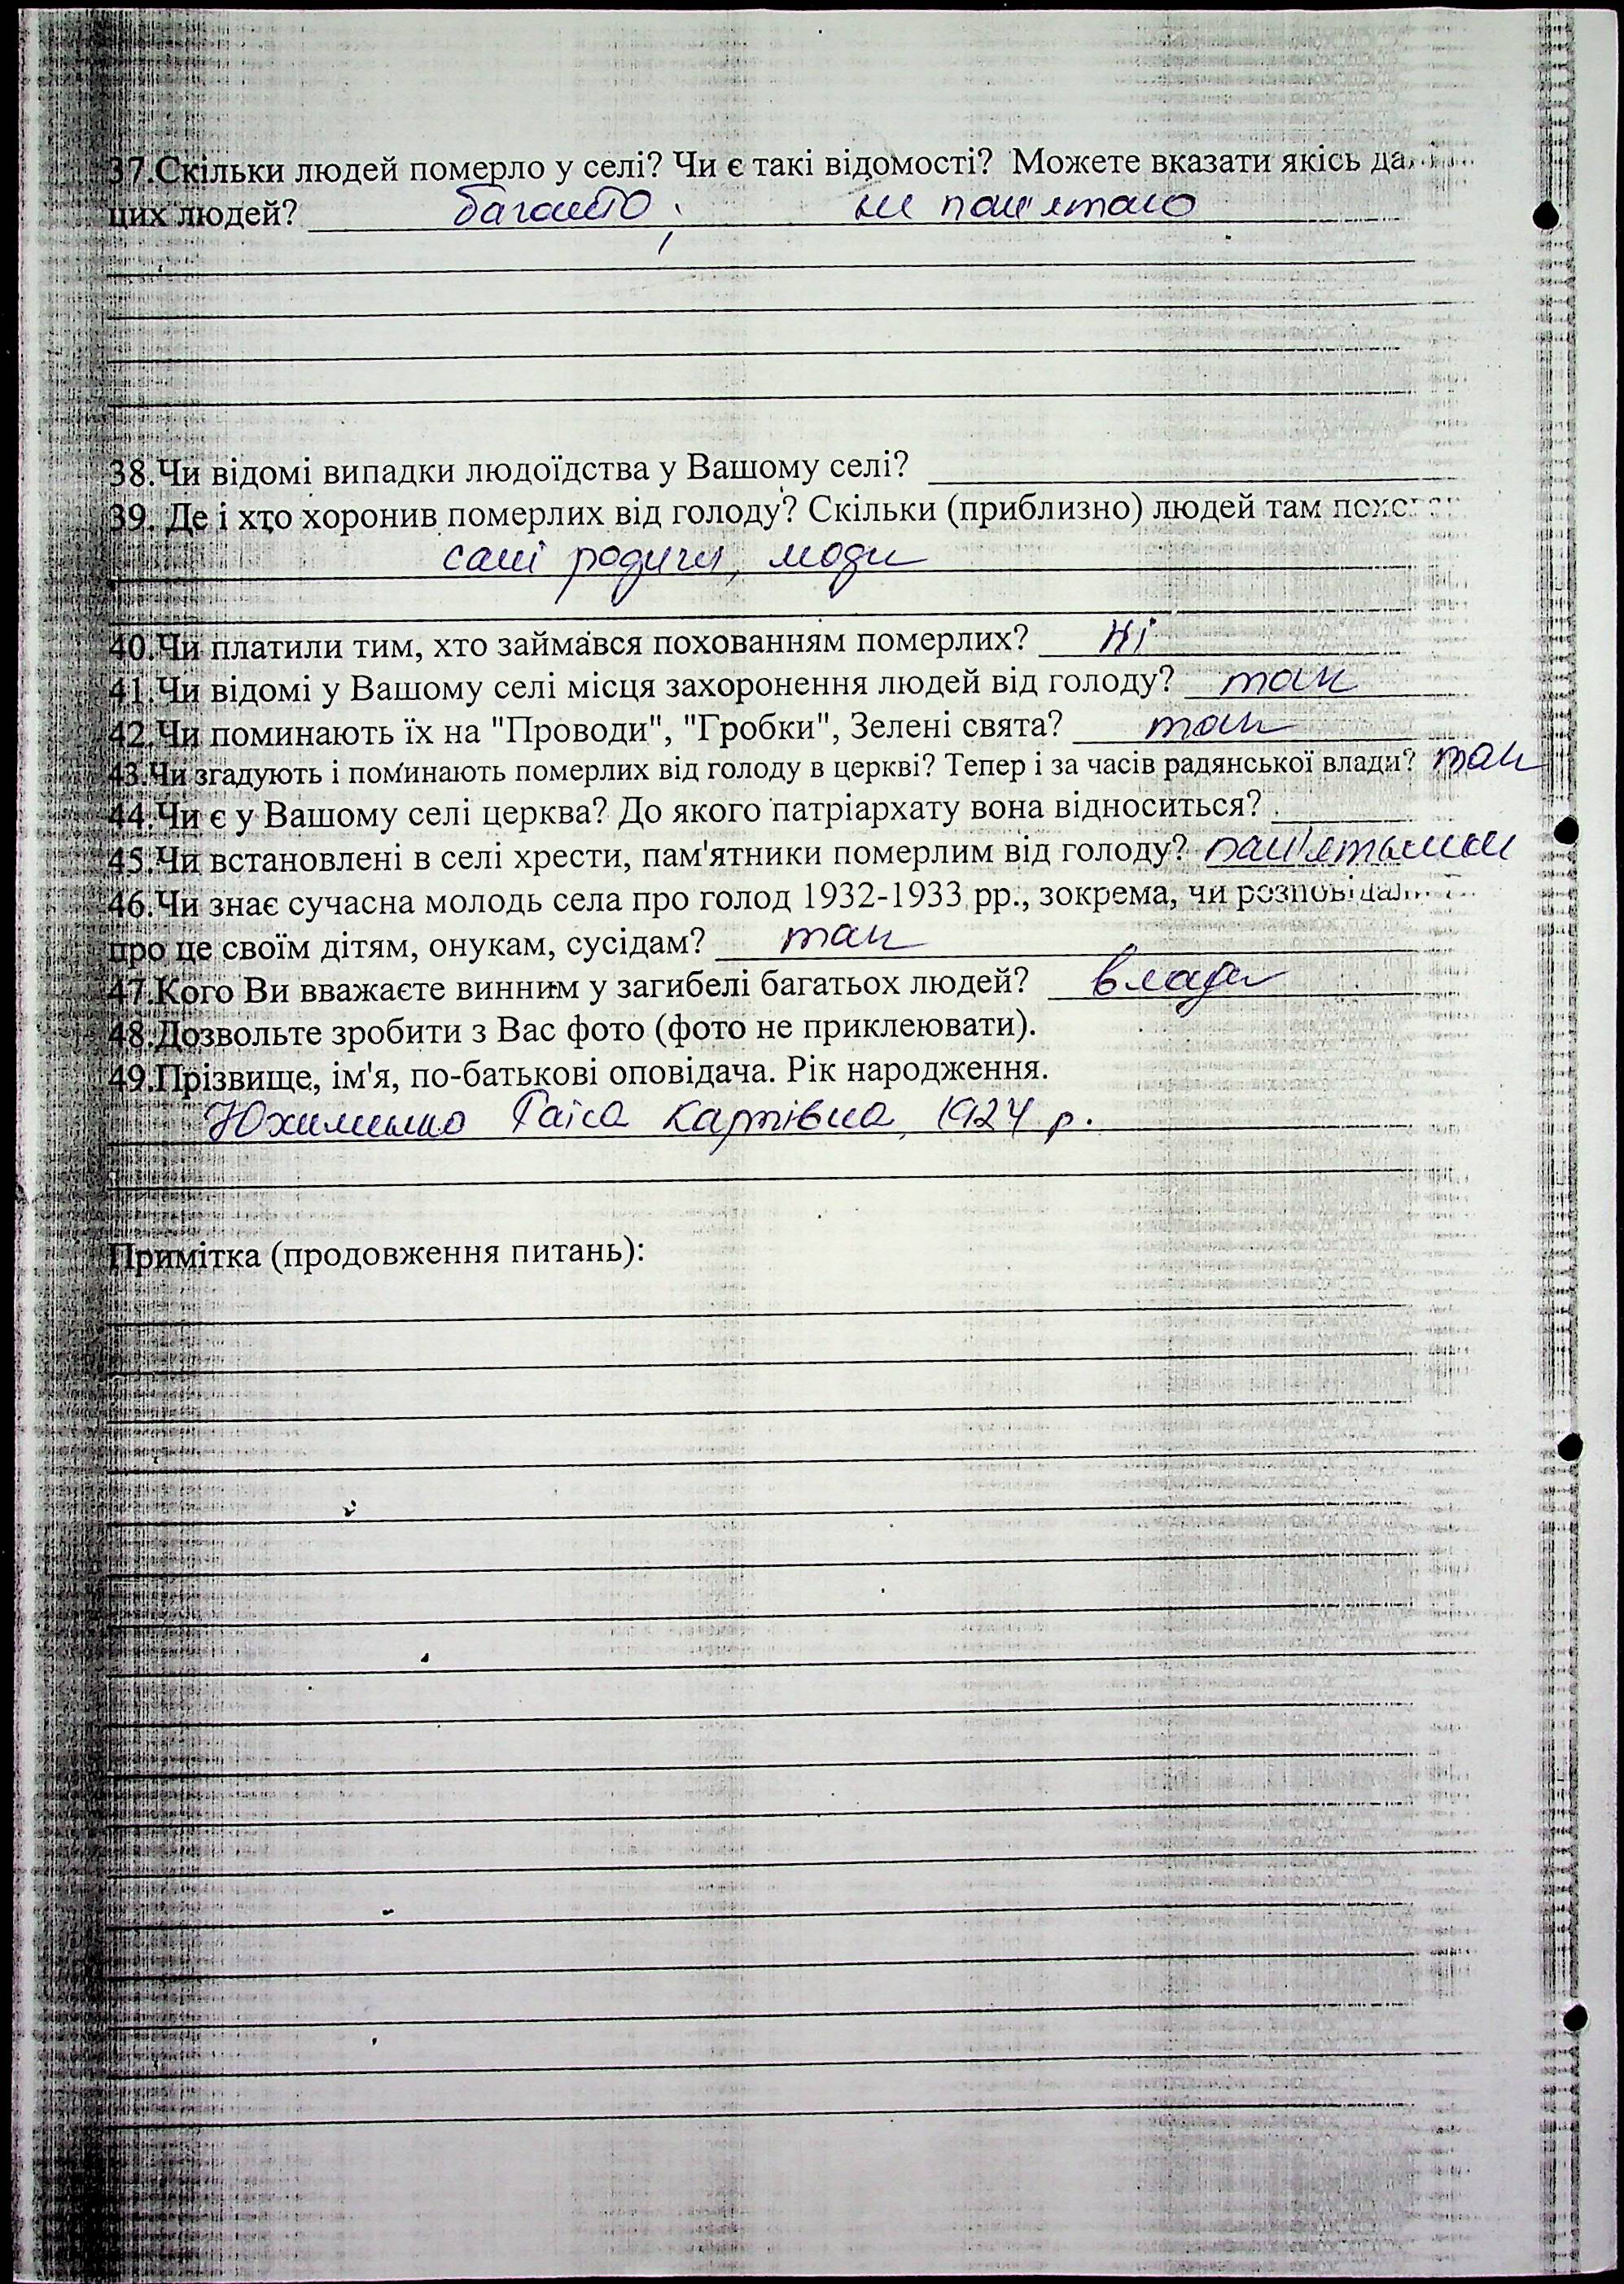 37.Скільки людей померло у селі? Чи є такі відомості? Можете вказати якісь
цих людей? багато, не пам'ятаю
38.Чи відомі випадки людоїдства у Вашому селі?
39. Де і хто хоронив померлих від голоду? Скільки (приблизно) людей там
самі родичі, люди
40.Чи платили тим, хто займався похованням померлих? ні
41.Чи відомі у Вашому селі місця захоронення людей від голоду? так
42.Чи поминають їх на "Проводи", "Гробки", Зелені свята? так
43.Чи згадують і поминають померлих від голоду в церкві? Тепер і за часів радянської влади? так
44.Чи є у Вашому селі церква? До якого патріархату вона відноситься?
45.Чи встановлені в селі хрести, пам'ятники померлим від голоду?
46.Чи знає сучасна молодь села про голод 1932-1933 рр., зокрема, чи
про це своїм дітям, онукам, сусідам? так
47.Кого Ви вважаєте винним у загибелі багатьох людей? влади
48.Дозвольте зробити з Вас фото (фото не приклеювати).
49.Прізвище, ім'я, по-батькові оповідача. Рік народження.
Юхименко Раїса Карпівна, 1924 р.
Примітка (продовження питань):